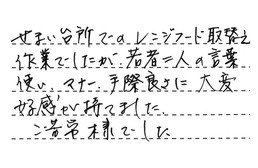 せまい台所でのレンジフード取替え
作業でしたが、若者二人の言葉
使い、マナー、手際良さに大変
好感が持てました。
ご苦労様でした